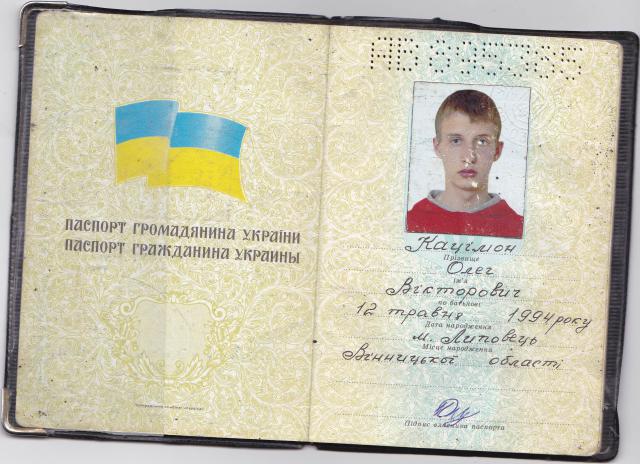 ПАСПОРТ ГРОМАДЯНИНА УКРАЇНИ
ПАСПОРТ ГРАЖДАНИНА УКРАИНЫ
Кацімон
Прізвище
Олег
Ім'я
Вікторович
по батькові
12 травня 1994 року
Дата народження
м. Липовець
Місце народження
Вінницької області
Підпис власника паспорта